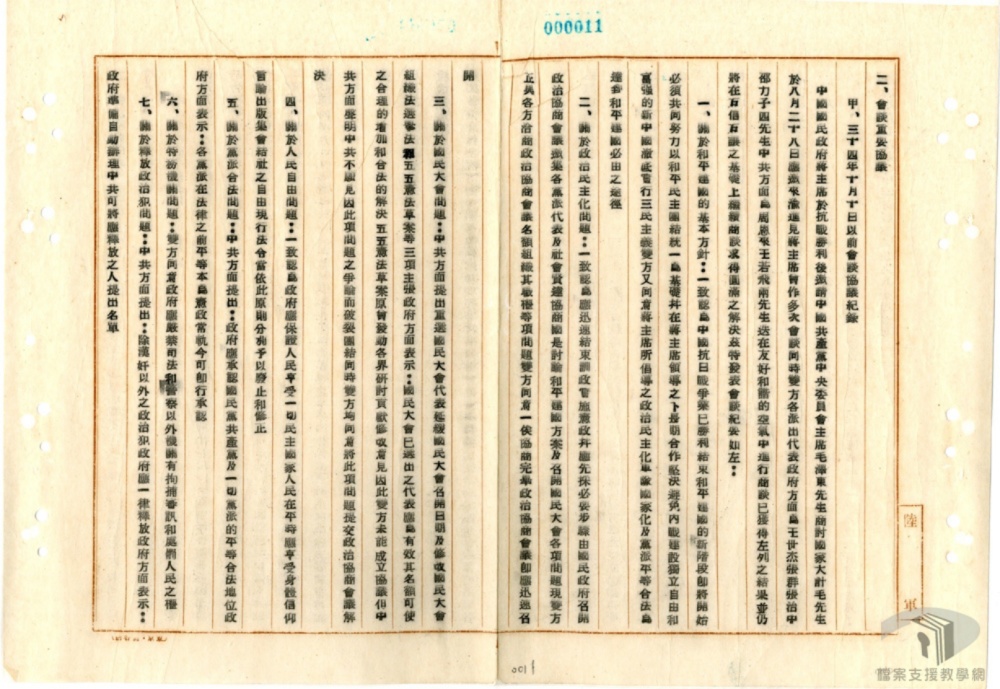 000011
二、會談重要協議
甲、三十四年十月十日以前會談協議紀錄
中國國民政府蔣主席於抗戰勝利後邀請中國共產黨中央委員會主席毛澤東先生商討國家大計毛先生
於八月二十八日應邀來渝進見蔣主席曾作多次會談同時雙方各派出代表政府方面為王世杰張群張治中
邵力子四先生中共方面為周恩來王若飛兩先生迭在友好和諧的空氣中進行商談已獲得左列之結果並仍
將在互信互讓之基礎上繼續商談求得圓滿之解決茲特發表會談紀要如左：
一、關於和平建國的基本方針：一致認為中國抗日戰爭業已勝利結束和平建國的新階段即將開始
必須共同努力以和平民主團結統一為基礎并在蔣主席領導之下長期合作堅決避免內戰建設獨立自由和
富強的新中國徹底實行三民主義雙方又同意蔣主席所倡導之政治民主化軍隊國家化及黨派平等合法為
達到和平建國必由之途徑
二、關於政治民主化問題：一致認為應迅速結束訓政實施憲政并應先採必要步驟由國民政府召開
政治協商會議邀集各黨派代表及社會賢達協商國是討論和平建國方案及召開國民大會各項問題現雙方
正與各方洽商政治協商會議名額組織其職權等項問題雙方同意一俟協商完畢政治協商會議即應迅速召
開
三、關於國民大會問題：中共方面提出重選國民大會代表延緩國民大會召開日期及修改國民大會
組織法選舉法和五五憲法草案等三項主張政府方面表示：國民大會已選出之代表應為有效其名額可使
之合理的增加和合法的解決五五憲法草案原曾發動各界研討貢獻修改意見因此雙方未能成立協議但中
共方面聲明中共不願見因此項問題之爭論而破裂團結同時雙方均同意將此項問題提交政治協商會議解
決
四、關於人民自由問題：一致認為政府應保證人民享受一切民主國家人民在平時應享受身體信仰
言論出版集會結社之自由現行法令當依此原則分別予以廢止和修正
五、關於黨派合法問題：中共方面提出：政府應承認國民黨共產黨及一切黨派的平等合法地位政
府方面表示：各黨派在法律之前平等本為憲政常軌今可即行承認
六、關於特務機關問題：雙方同意政府應嚴禁司法和警察以外機關有拘捕審訊和處罰人民之權
七、關於釋放政治犯問題：中共方面提出：除漢奸以外之政治犯政府應一律釋放政府方面表示：
政府準備自動辦理中共可將應釋放之人提出名單
陸
軍
0011
檔案支援教學網